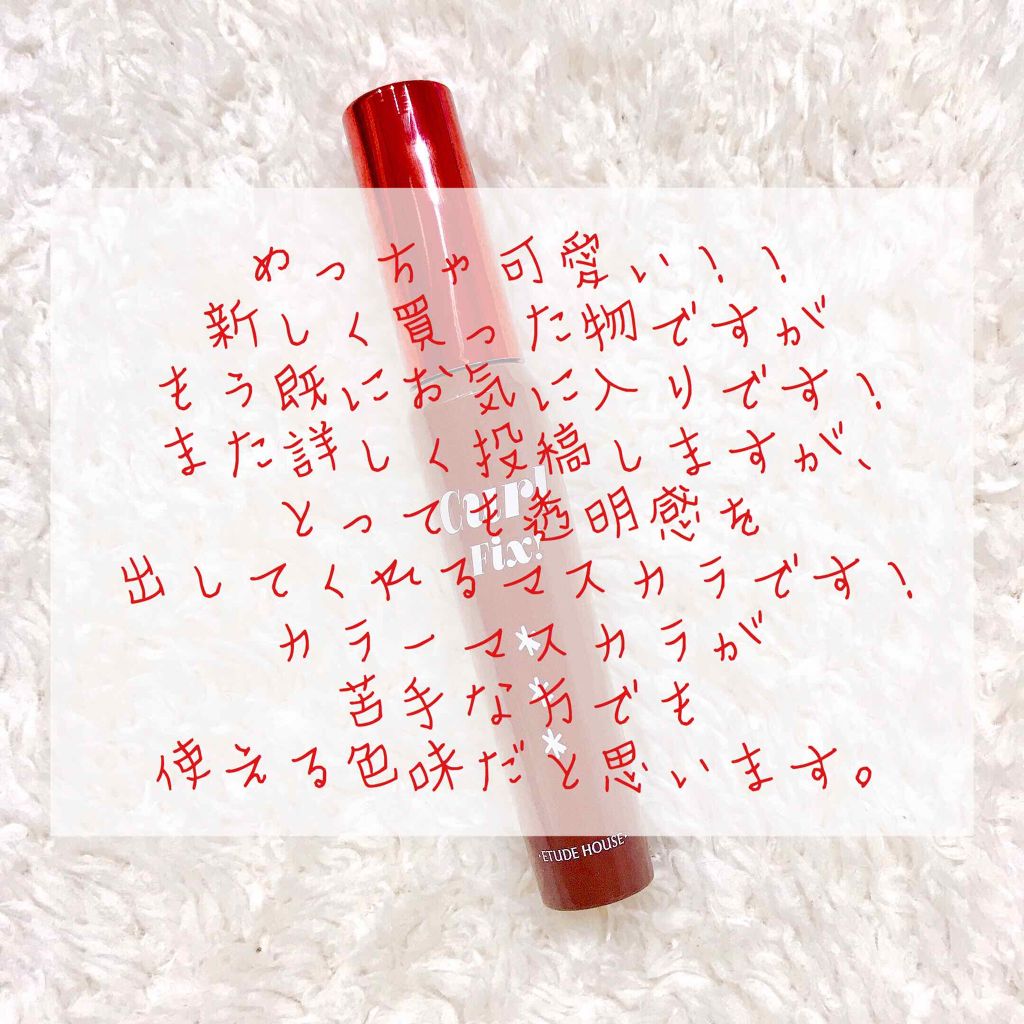 めっちゃ可愛い！！
新しく買った物ですが
もう既にお気に入りです！
また詳しく投稿しますが、
とっても透明感を
出してくれるマスカラです！
カラーマスカラが
苦手な方でも
使える色味だと思います。
Curl
Fix!
ETUDE HOUSE